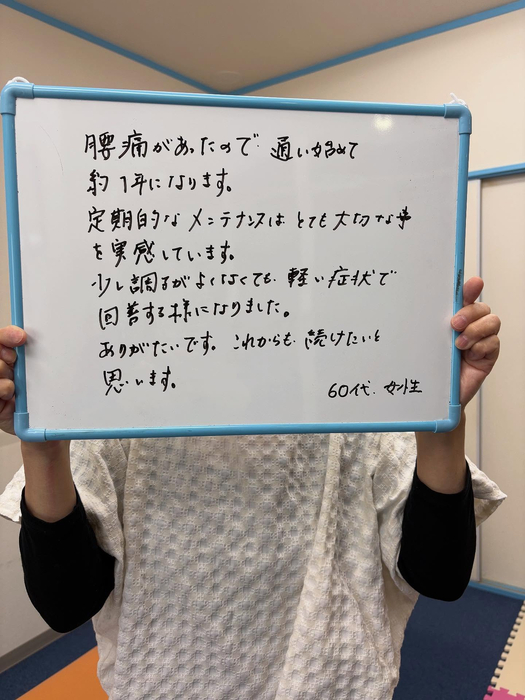 腰痛があったので 通い始めて
約1年になります。
定期的なメンテナンスはとても大切な事
を実感しています。
少し調子がよくなくても、軽い症状で
回善する様になりました。
ありがたいです。これからも、続けたいと
思います。
60代、女性